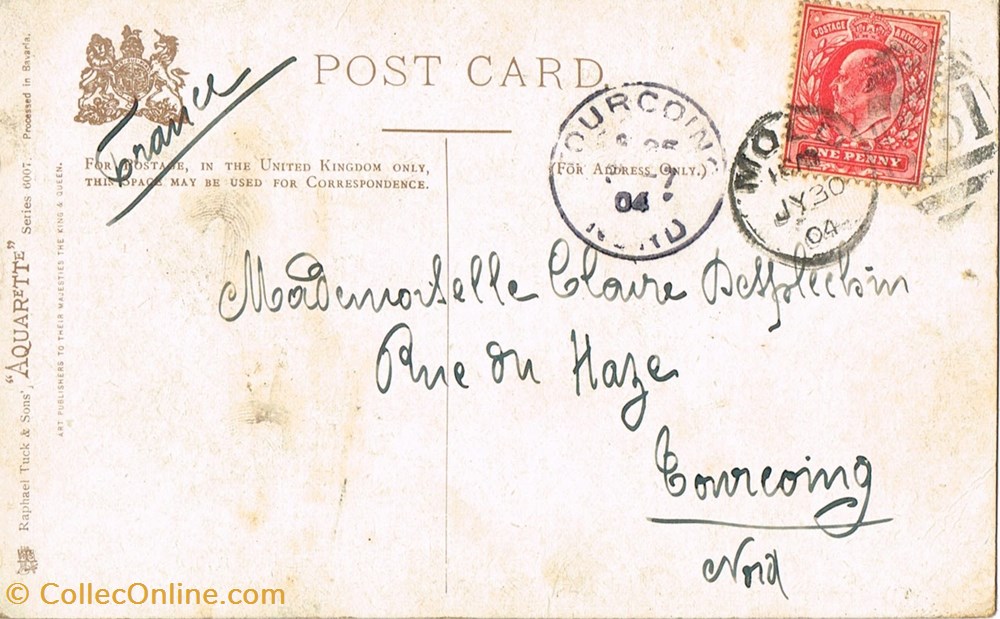 POST CARD.
France
FOR POSTAGE, IN THE UNITED KINGDOM ONLY,
THIS SPACE MAY BE USED FOR CORRESPONDENCE.
(FOR ADDRESS ONLY.)
TOURCOING
04
NORD
POSTAGE
ONE PENNY
JY 30
04
Mademoiselle Claire Desplechin
Rue du Haze
Tourcoing
Nord
Raphael Tuck & Sons' "AQUARETTE" Series 6007. Processed in Bavaria.
ART PUBLISHERS TO THEIR MAJESTIES THE KING & QUEEN.
© CollecOnline.com